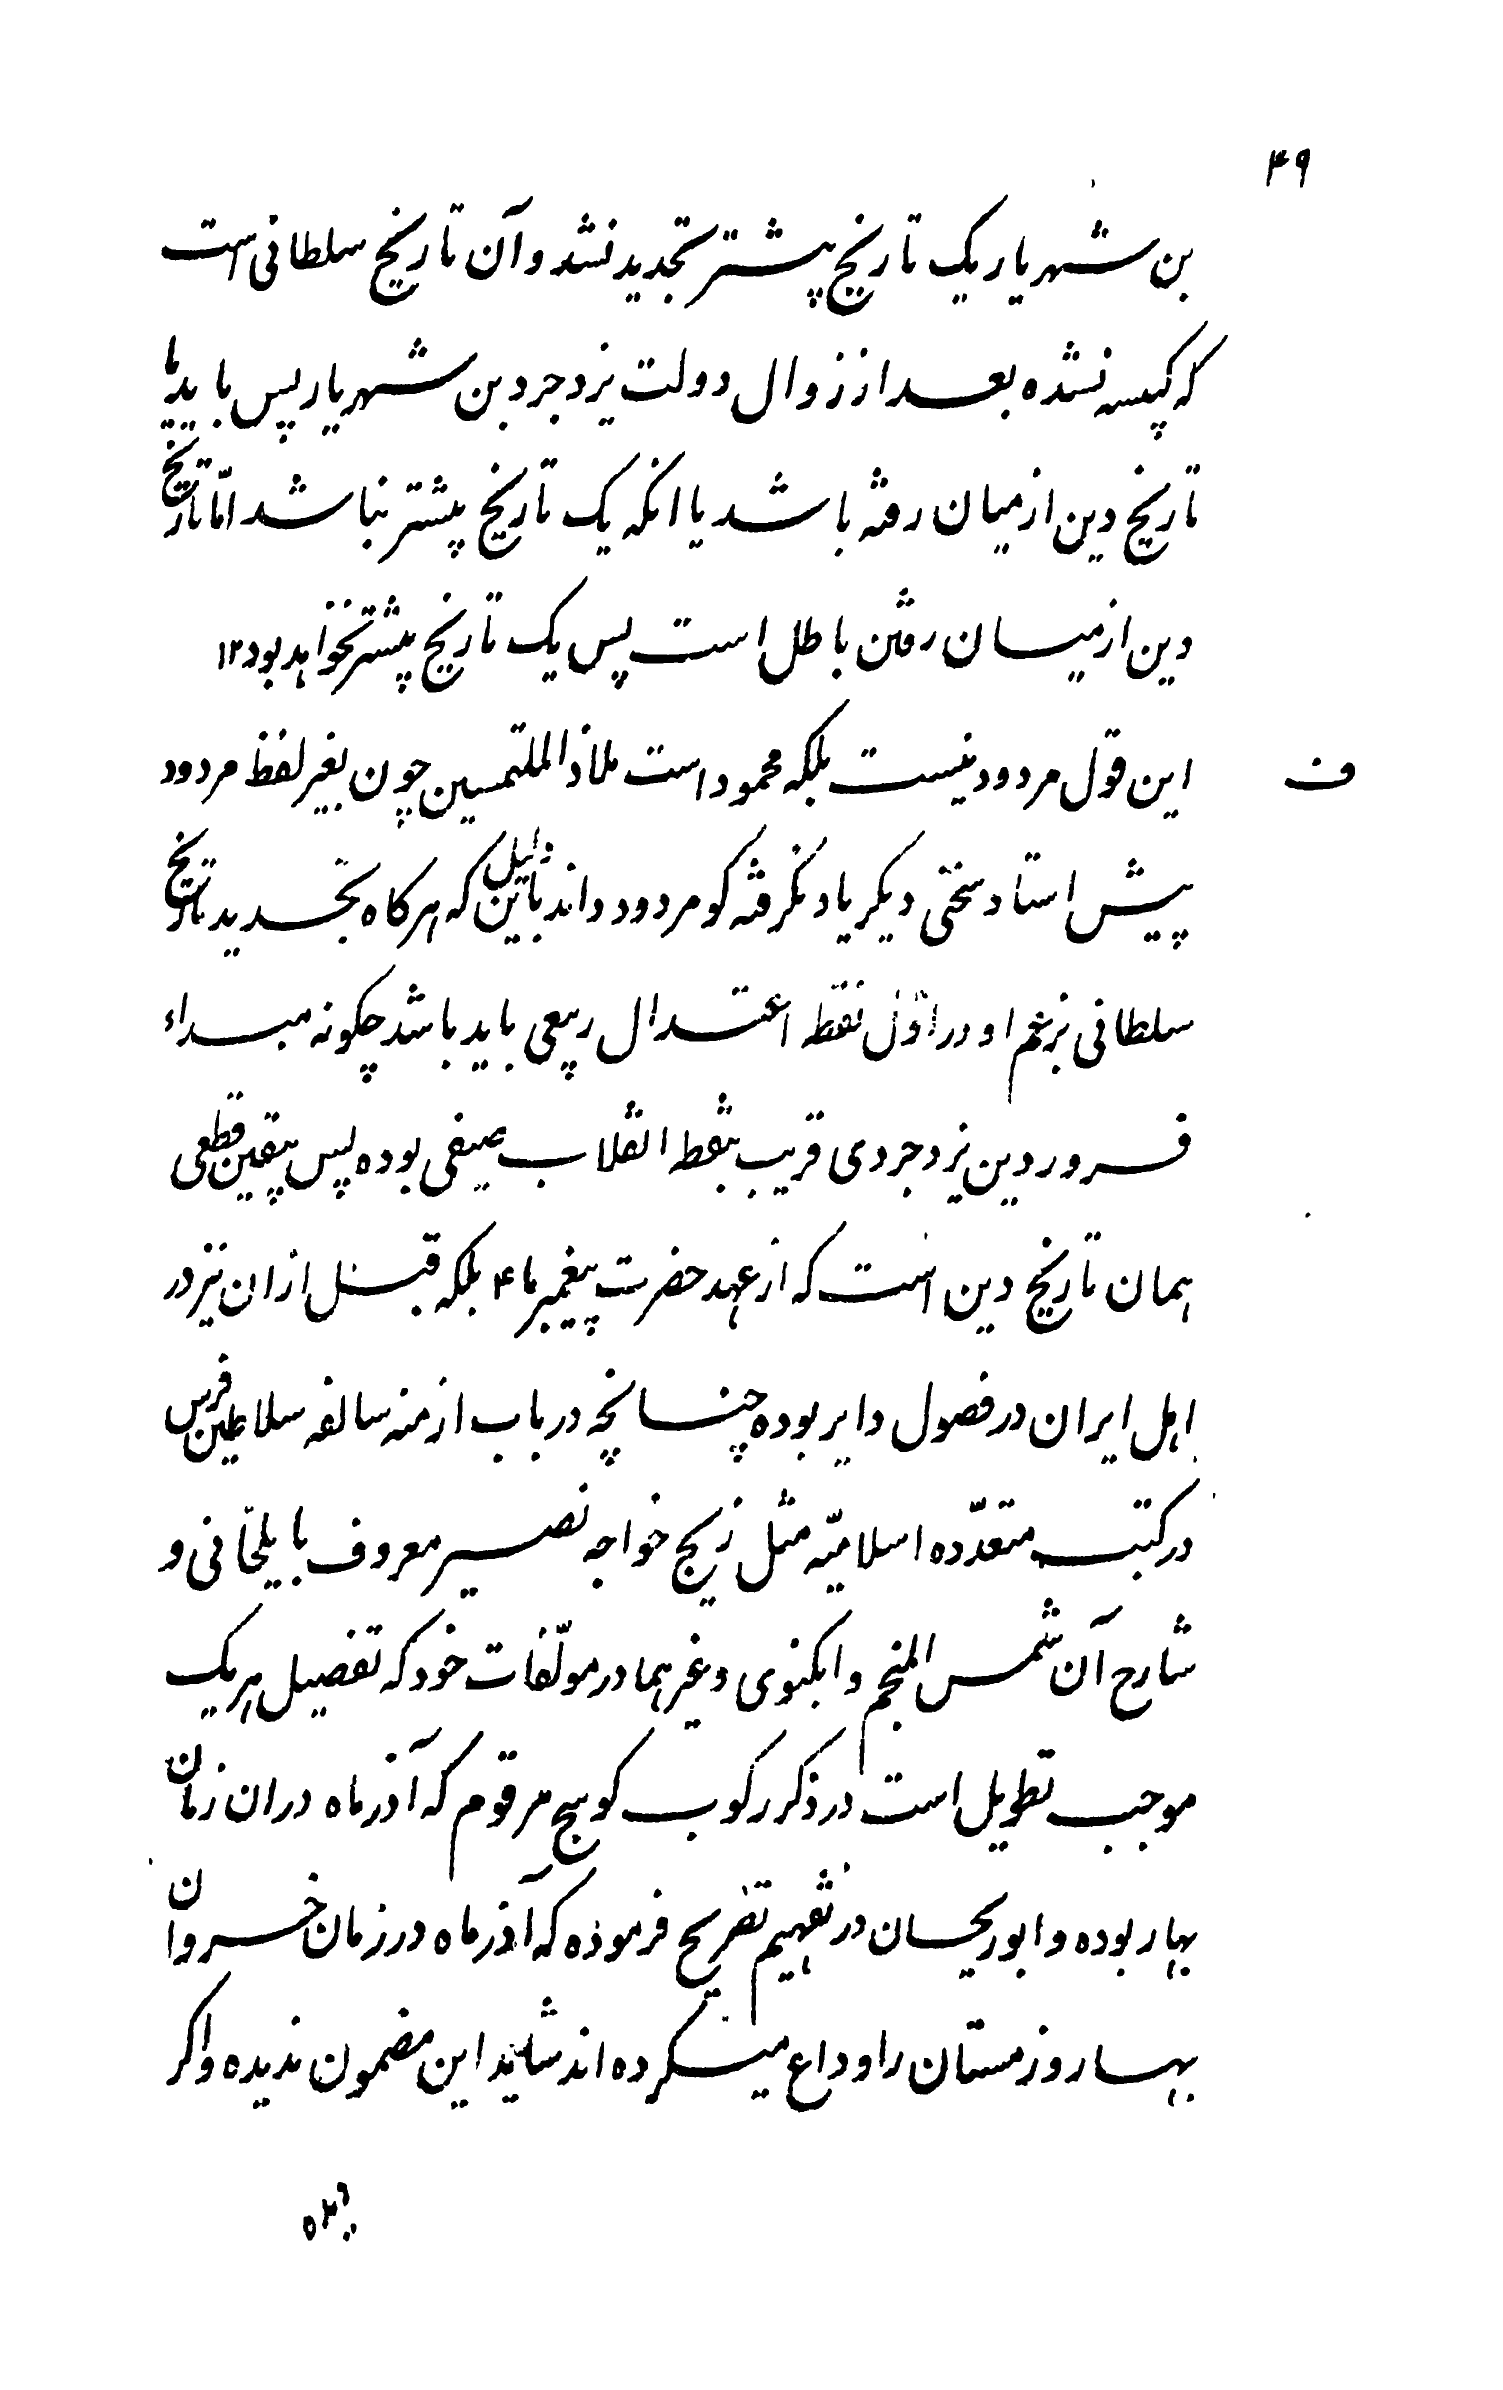 ۴۹
بن شهریار یک تاریخ پیشتر تجدید نشد و آن تاریخ سلطانی است
که کپیسه نشده بعد از زوال دولت یزدجرد بن شهریار پس باید یا
تاریخ دین از میان رفته باشد یا انکه یک تاریخ پیشتر نباشد امّا تاریخ
دین از میان رفتن باطل است پس یک تاریخ پیشتر نخواهد بود ۱۲
ف این قول مردود نیست بلکه محمود است ملاذ الملتمسین چون بغیر لفظ مردود
پیش استاد سخنی دیکر یاد نکرفته کو مردود داند باین دلیل که هرکاه تجدید تاریخ
سلطانی بزعم او در اوّل نقطه اعتدال ربیعی باید باشد چکونه مبداء
فروردین یزدجردی قریب بنقطه انقلاب صیفی بوده پس بیقین قطعی
همان تاریخ دین است که از عهد حضرت پیغمبر ما ۴ بلکه قبل ازان نیز در
اهل ایران در فصول دایر بوده چنانچه در باب ازمنه سالفه سلاطین فرس
در کتب متعدّده اسلامیّه مثل زیج خواجه نصیر معروف بایلخانی و
شارح آن شمس المنجم وابکنوی وغیرهما در مولّفات خود که تفصیل هریک
موجب تطویل است در ذکر رکوب کوسج مرقوم که آذر ماه دران زمان
بهار بوده و ابوریحان در تفهیم تصریح فرموده که آذر ماه در زمان خسروان
بهار و زمستان را وداع میکرده اند شاید این مضمون ندیده واکر